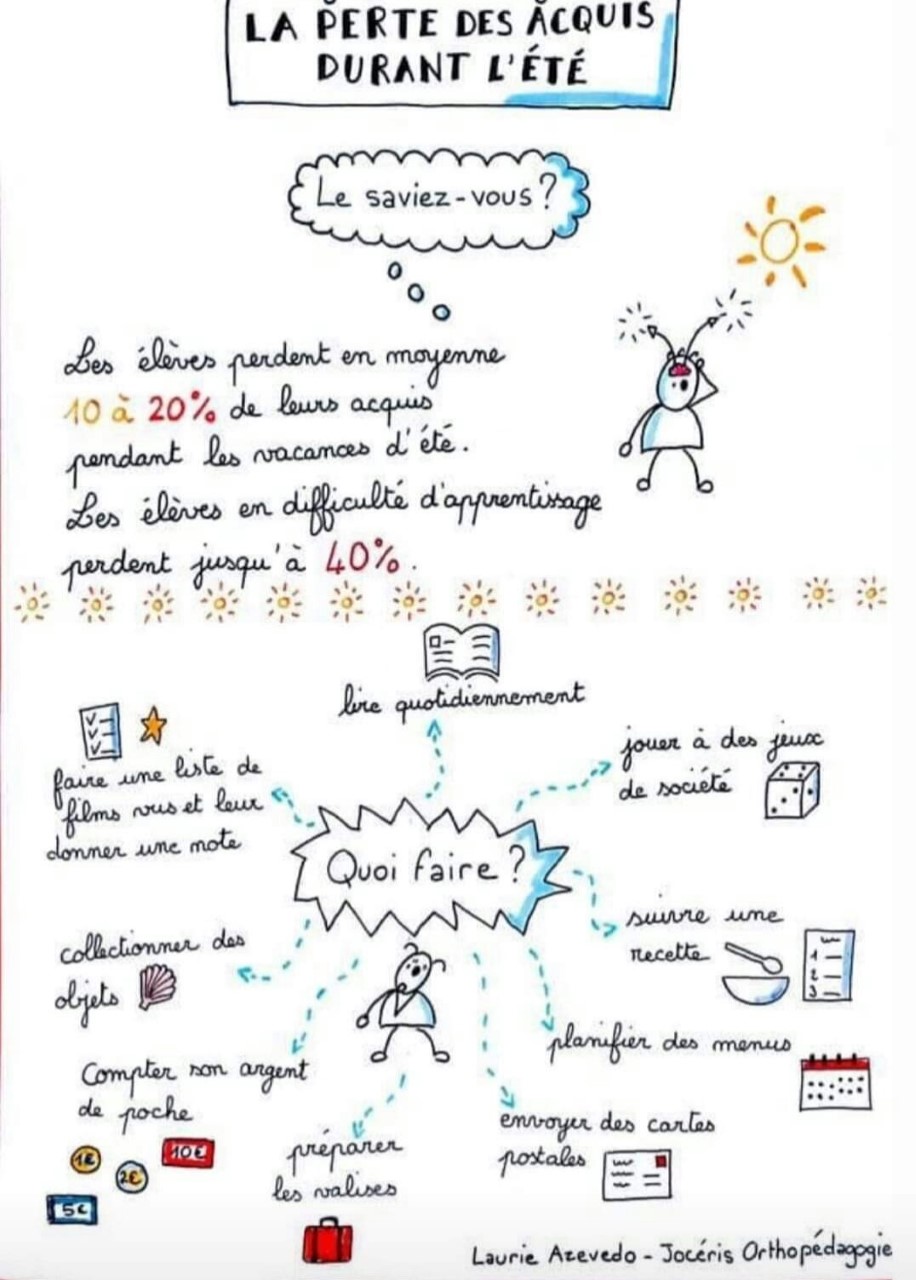 LA PERTE DES ACQUIS
DURANT L'ÉTÉ
Le saviez-vous?
Les élèves perdent en moyenne
10 à 20% de leurs acquis
pendant les vacances d'été.
Les élèves en difficulté d'apprentissage
perdent jusqu'à 40%.
lire quotidiennement
jouer à des jeux
de société
faire une liste de
films vus et leur
donner une note
Quoi faire?
suivre une
recette
1
2
3
collectionner des
objets
planifier des menus
Compter son argent
de poche
1€
2€
10€
5€
préparer
les valises
envoyer des cartes
postales
Laurie Azevedo - Jocéris Orthopédagogie